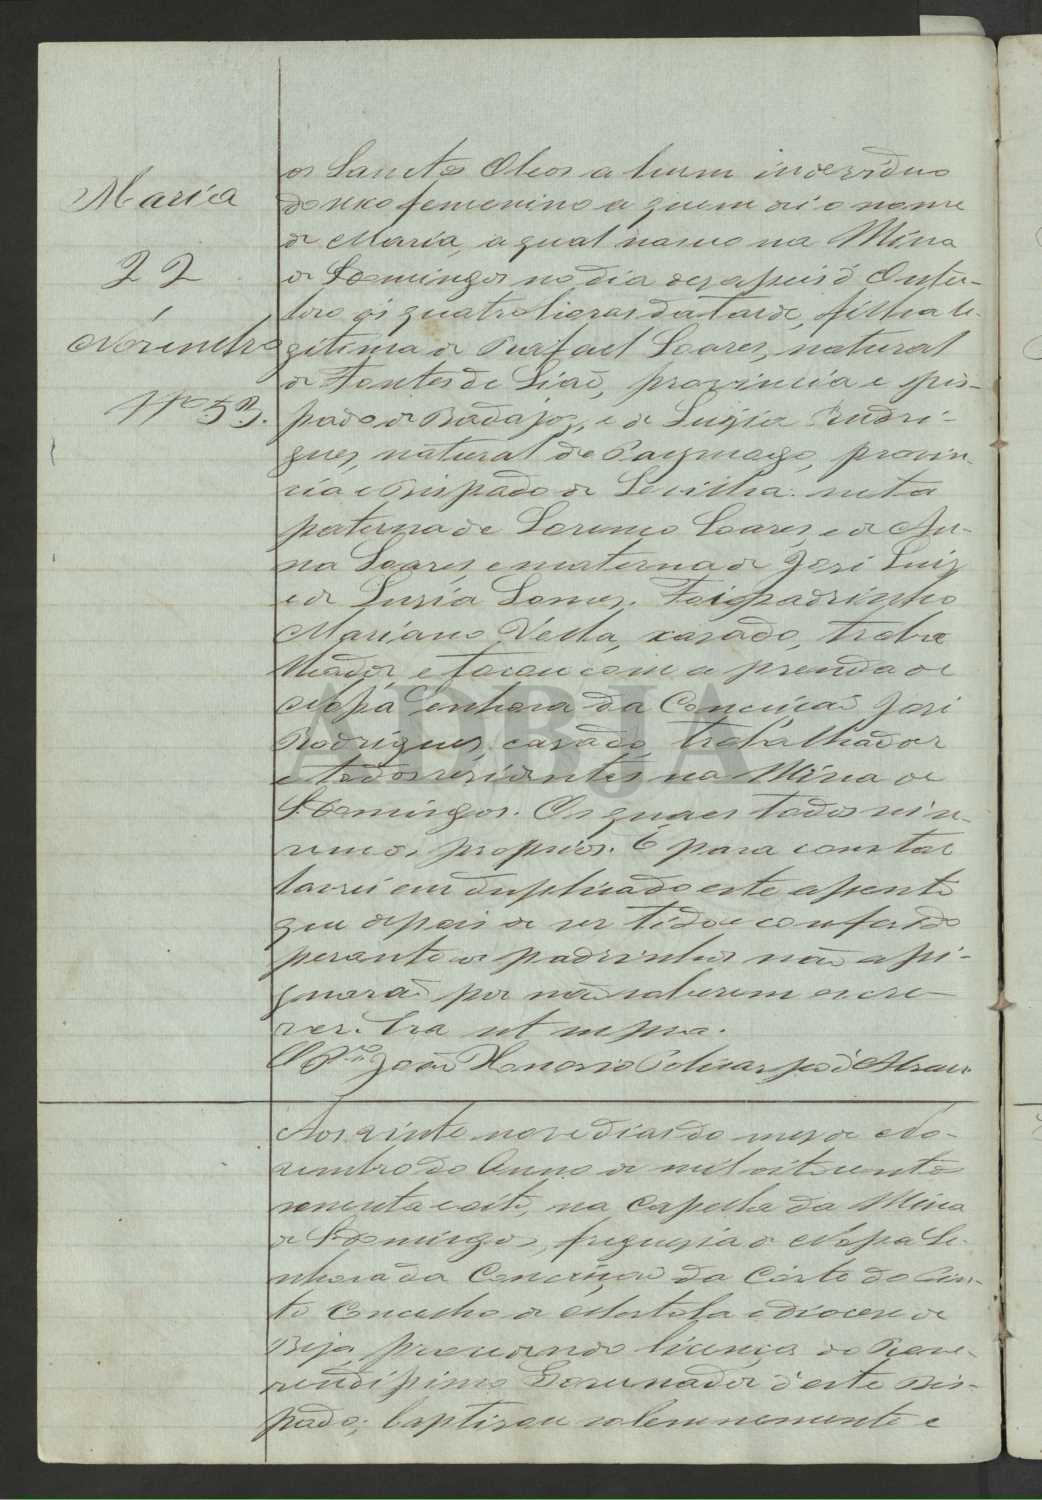 os Sanctos Oleos a hum individuo
Maria
do sexo femenino a quem dei o nome
de Maria, a qual nasceo na Mina
22
de S. Domingos no dia deseseis d'Outu-
bro ás quatro horas da tarde, filha le-
Novembro
gitima de Rafael Soares, natural
de Fontes de Lião, provincia e Bis-
Nº 53.
pado de Badajoz, e de Luzia Rudri-
gues, natural de Paymogo, provin-
cia e Bispado de Sevilha: neta
paterna de Lorenço Soares, e de An-
na Soares, e materna de José Luiz
e de Luzia Gomes. Foi padrinho
Mariano Vella, casado, traba
lhador, e tocou com a prenda de
Nossa Senhora da Conceição José
Rodrigues, casado, trabalhador
e todos residentes na Mina de
S. Domingos. Os quaes todos
os proprios. E para constar
lavrei em duplicado este assento
que depois de ser lido e conferido
perante os padrinhos não assi-
gnarão por não saberem escre-
ver. Era ut supra.
O João Honorio Policarpo d'Abreu
ADBJA
Aos vinte nove dias do mez de No-
vembro do Anno de mil oito centos
noventa e oito, na Capella da Mina
de S. Domingos, freguezia de Nossa Se-
nhora da Conceição da Corte do Pin-
to Concelho de Mertola e diocese de
Beja, precedendo licença do Reve-
rendissimo Governador d'este Bis-
pado; baptisou solemnemente e